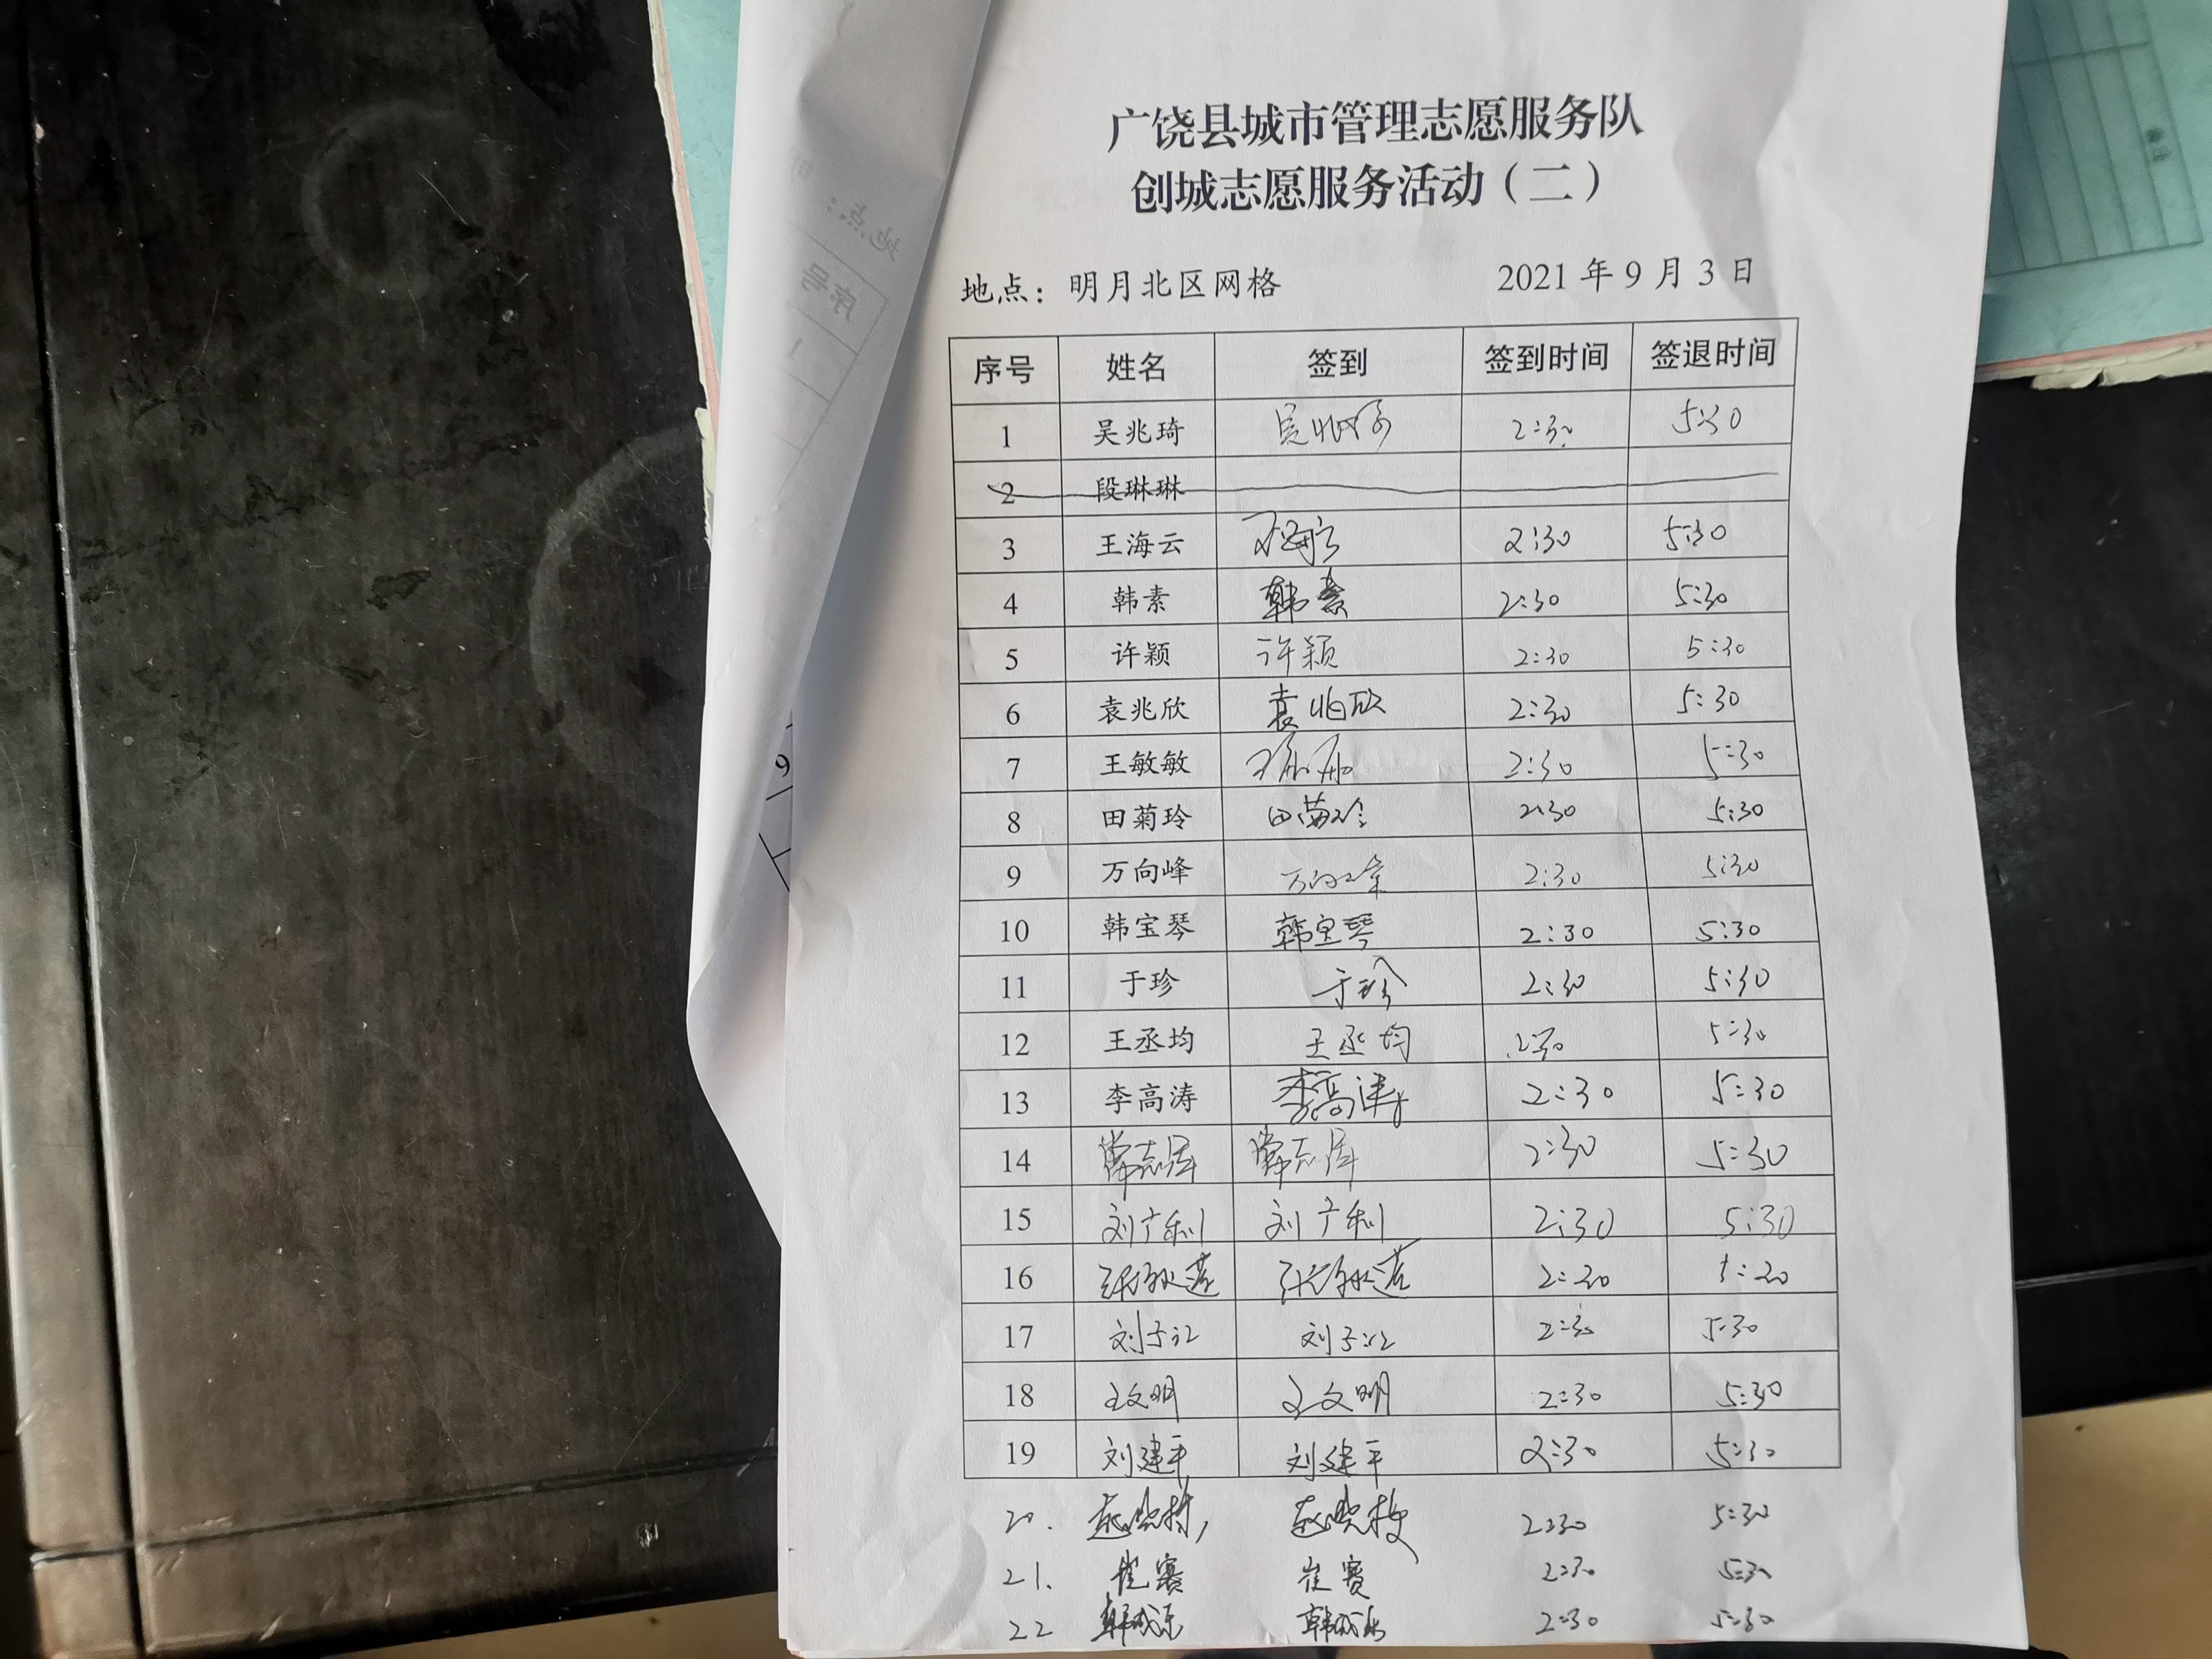 广饶县城市管理志愿服务队
创城志愿服务活动（二）
地点：明月北区网格 2021年9月3日
序号 姓名 签到 签到时间 签退时间
1 吴兆琦 吴兆琦 2:30 5:30
2 段琳琳
3 王海云 王海云 2:30 5:30
4 韩素 韩素 2:30 5:30
5 许颖 许颖 2:30 5:30
6 袁兆欣 袁兆欣 2:30 5:30
7 王敏敏 王敏敏 2:30 5:30
8 田菊玲 田菊玲 2:30 5:30
9 万向峰 万向峰 2:30 5:30
10 韩宝琴 韩宝琴 2:30 5:30
11 于珍 于珍 2:30 5:30
12 王丞均 王丞均 2:30 5:30
13 李高涛 李高涛 2:30 5:30
14 2:30 5:30
15 刘广利 刘广利 2:30 5:30
16 2:30
17 2:30 5:30
18 王文明 王文明 2:30 5:30
19 刘建平 刘建平 2:30 5:30
20. 2:30 5:30
21. 崔赛 崔赛 2:30 5:30
22 2:30 5:30
地点：
序号
1
9